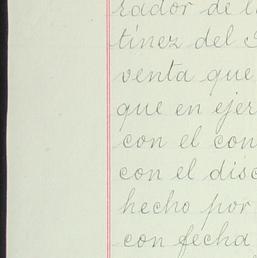 rador de l
tínez del
venta que
que en ejer
con el con
con el disc
hecho por
con fecha